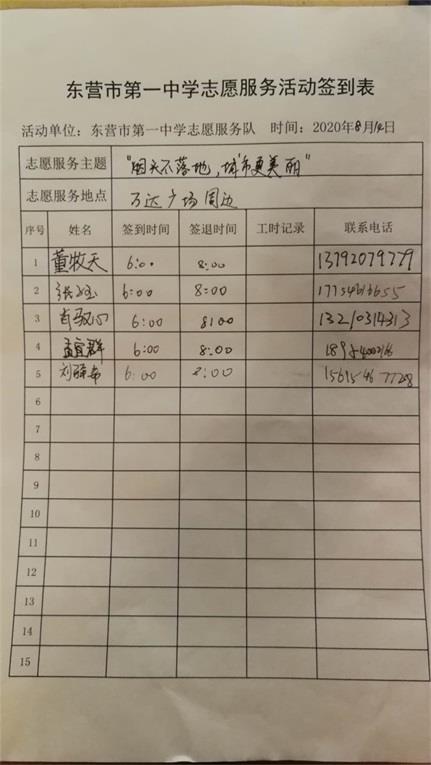 东营市第一中学志愿服务活动签到表
活动单位：东营市第一中学志愿服务队 时间：2020年8月14日
志愿服务主题 "烟头不落地，城市更美丽"
志愿服务地点 万达广场周边
序号 姓名 签到时间 签退时间 工时记录 联系电话
1 董牧天 6:00 8:00 13792079779
2 6:00 8:00
3 6:00 8:00 13210314313
4 孟宜群 6:00 8:00
5 6:00 8:00 15615467728
6
7
8
9
10
11
12
13
14
15